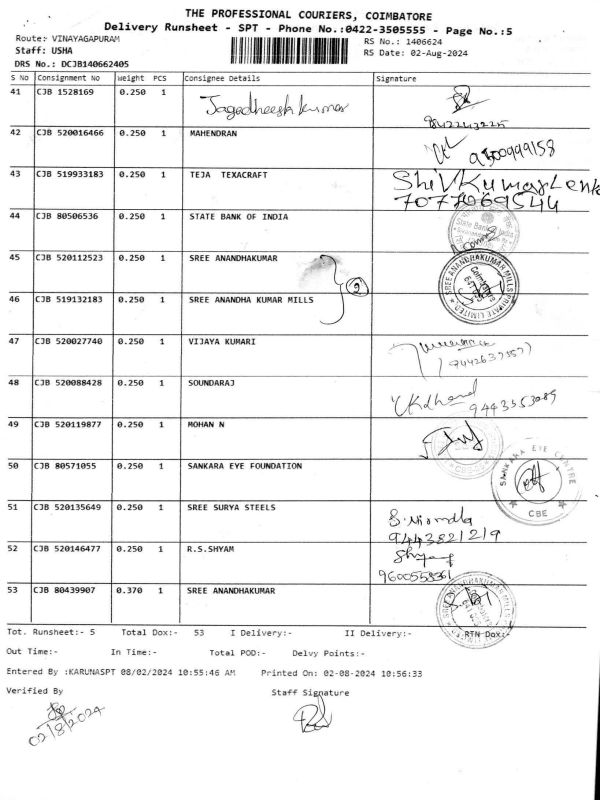 THE PROFESSIONAL COURIERS, COIMBATORE
Delivery Runsheet - SPT - Phone No.:0422-3505555 - Page No.:5
Route:- VINAYAGAPURAM
RS No.: 1406624
Staff: USHA
RS Date: 02-Aug-2024
DRS No.: DCJB140662405
S No Consignment No Weight PCS Consignee Details Signature
41 CJB 1528169 0.250 1 Jagadheesh kumar
42 CJB 520016466 0.250 1 MAHENDRAN
43 CJB 519933183 0.250 1 TEJA TEXACRAFT ShivKumar Lenka
7077069544
44 CJB 80506536 0.250 1 STATE BANK OF INDIA
45 CJB 520112523 0.250 1 SREE ANANDHAKUMAR
46 CJB 519132183 0.250 1 SREE ANANDHA KUMAR MILLS
SREE ANANDHAKUMAR MILLS PRIVATE LIMITED
47 CJB 520027740 0.250 1 VIJAYA KUMARI
48 CJB 520088428 0.250 1 SOUNDARAJ
9443553089
49 CJB 520119877 0.250 1 MOHAN N
50 CJB 80571055 0.250 1 SANKARA EYE FOUNDATION
SANKARA EYE CENTRE
CBE
51 CJB 520135649 0.250 1 SREE SURYA STEELS S. Nirmala
9443821219
52 CJB 520146477 0.250 1 R.S.SHYAM Shyam
53 CJB 80439907 0.370 1 SREE ANANDHAKUMAR
Tot. Runsheet:- 5 Total Dox:- 53 I Delivery:- II Delivery:- RTN Dox:-
Out Time:- In Time:- Total POD:- Delvy Points:-
Entered By :KARUNASPT 08/02/2024 10:55:46 AM Printed On: 02-08-2024 10:56:33
Verified By Staff Signature
02/8/2024